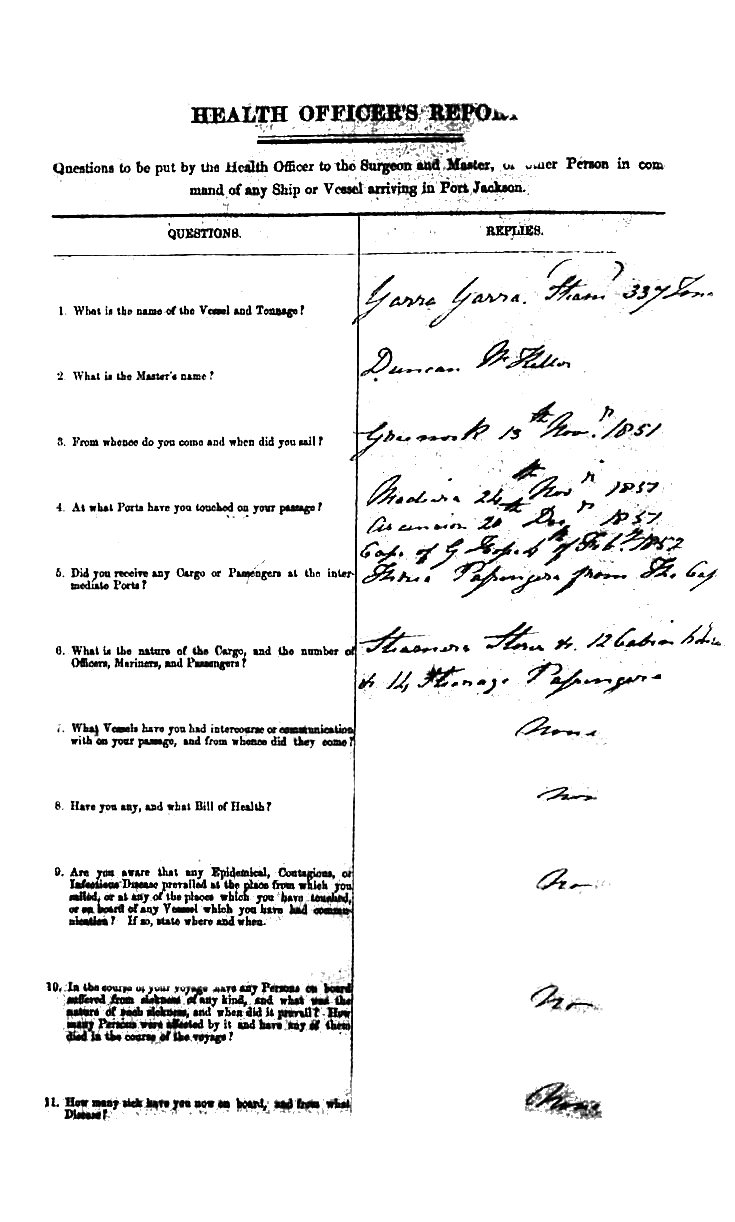 HEALTH OFFICER'S REPORT
Questions to be put by the Health Officer to the Surgeon and Master, or other Person in com
mand of any Ship or Vessel arriving in Port Jackson.
QUESTIONS.
REPLIES.
1. What is the name of the Vessel and Tonnage?
Yarra Yarra. (Steam) 337 Tons
2. What is the Master's name?
Duncan McKellor
3. From whence do you come and when did you sail?
Greenock 13th Novr. 1851
4. At what Ports have you touched on your passage?
Madeira 24th Novr 1851
Ascension 20th Decr 1851
Cape of G Hope 4th of Feby. 1852
5. Did you receive any Cargo or Passengers at the inter-
mediate Ports?
Three Passengers from The Cap
6. What is the nature of the Cargo, and the number of
Officers, Mariners, and Passengers?
Steamers Stores & 12 Cabin
& 14 Steerage Passengers
7. What Vessels have you had intercourse or communication
with on your passage, and from whence did they come?
None
8. Have you any, and what Bill of Health?
Non
9. Are you aware that any Epidemical, Contagious, or
Infectious Disease prevailed at the place from which you
sailed, or at any of the places which you have touched,
or on board of any Vessel which you have had commu-
nication? If so, state where and when.
No
10. In the course of your voyage have any Persons on board
suffered from sickness of any kind, and what was the
nature of such sickness, and when did it prevail? How
many Persons were affected by it and have any of them
died in the course of the voyage?
No
11. How many sick have you now on board, and from what
Disease?
None